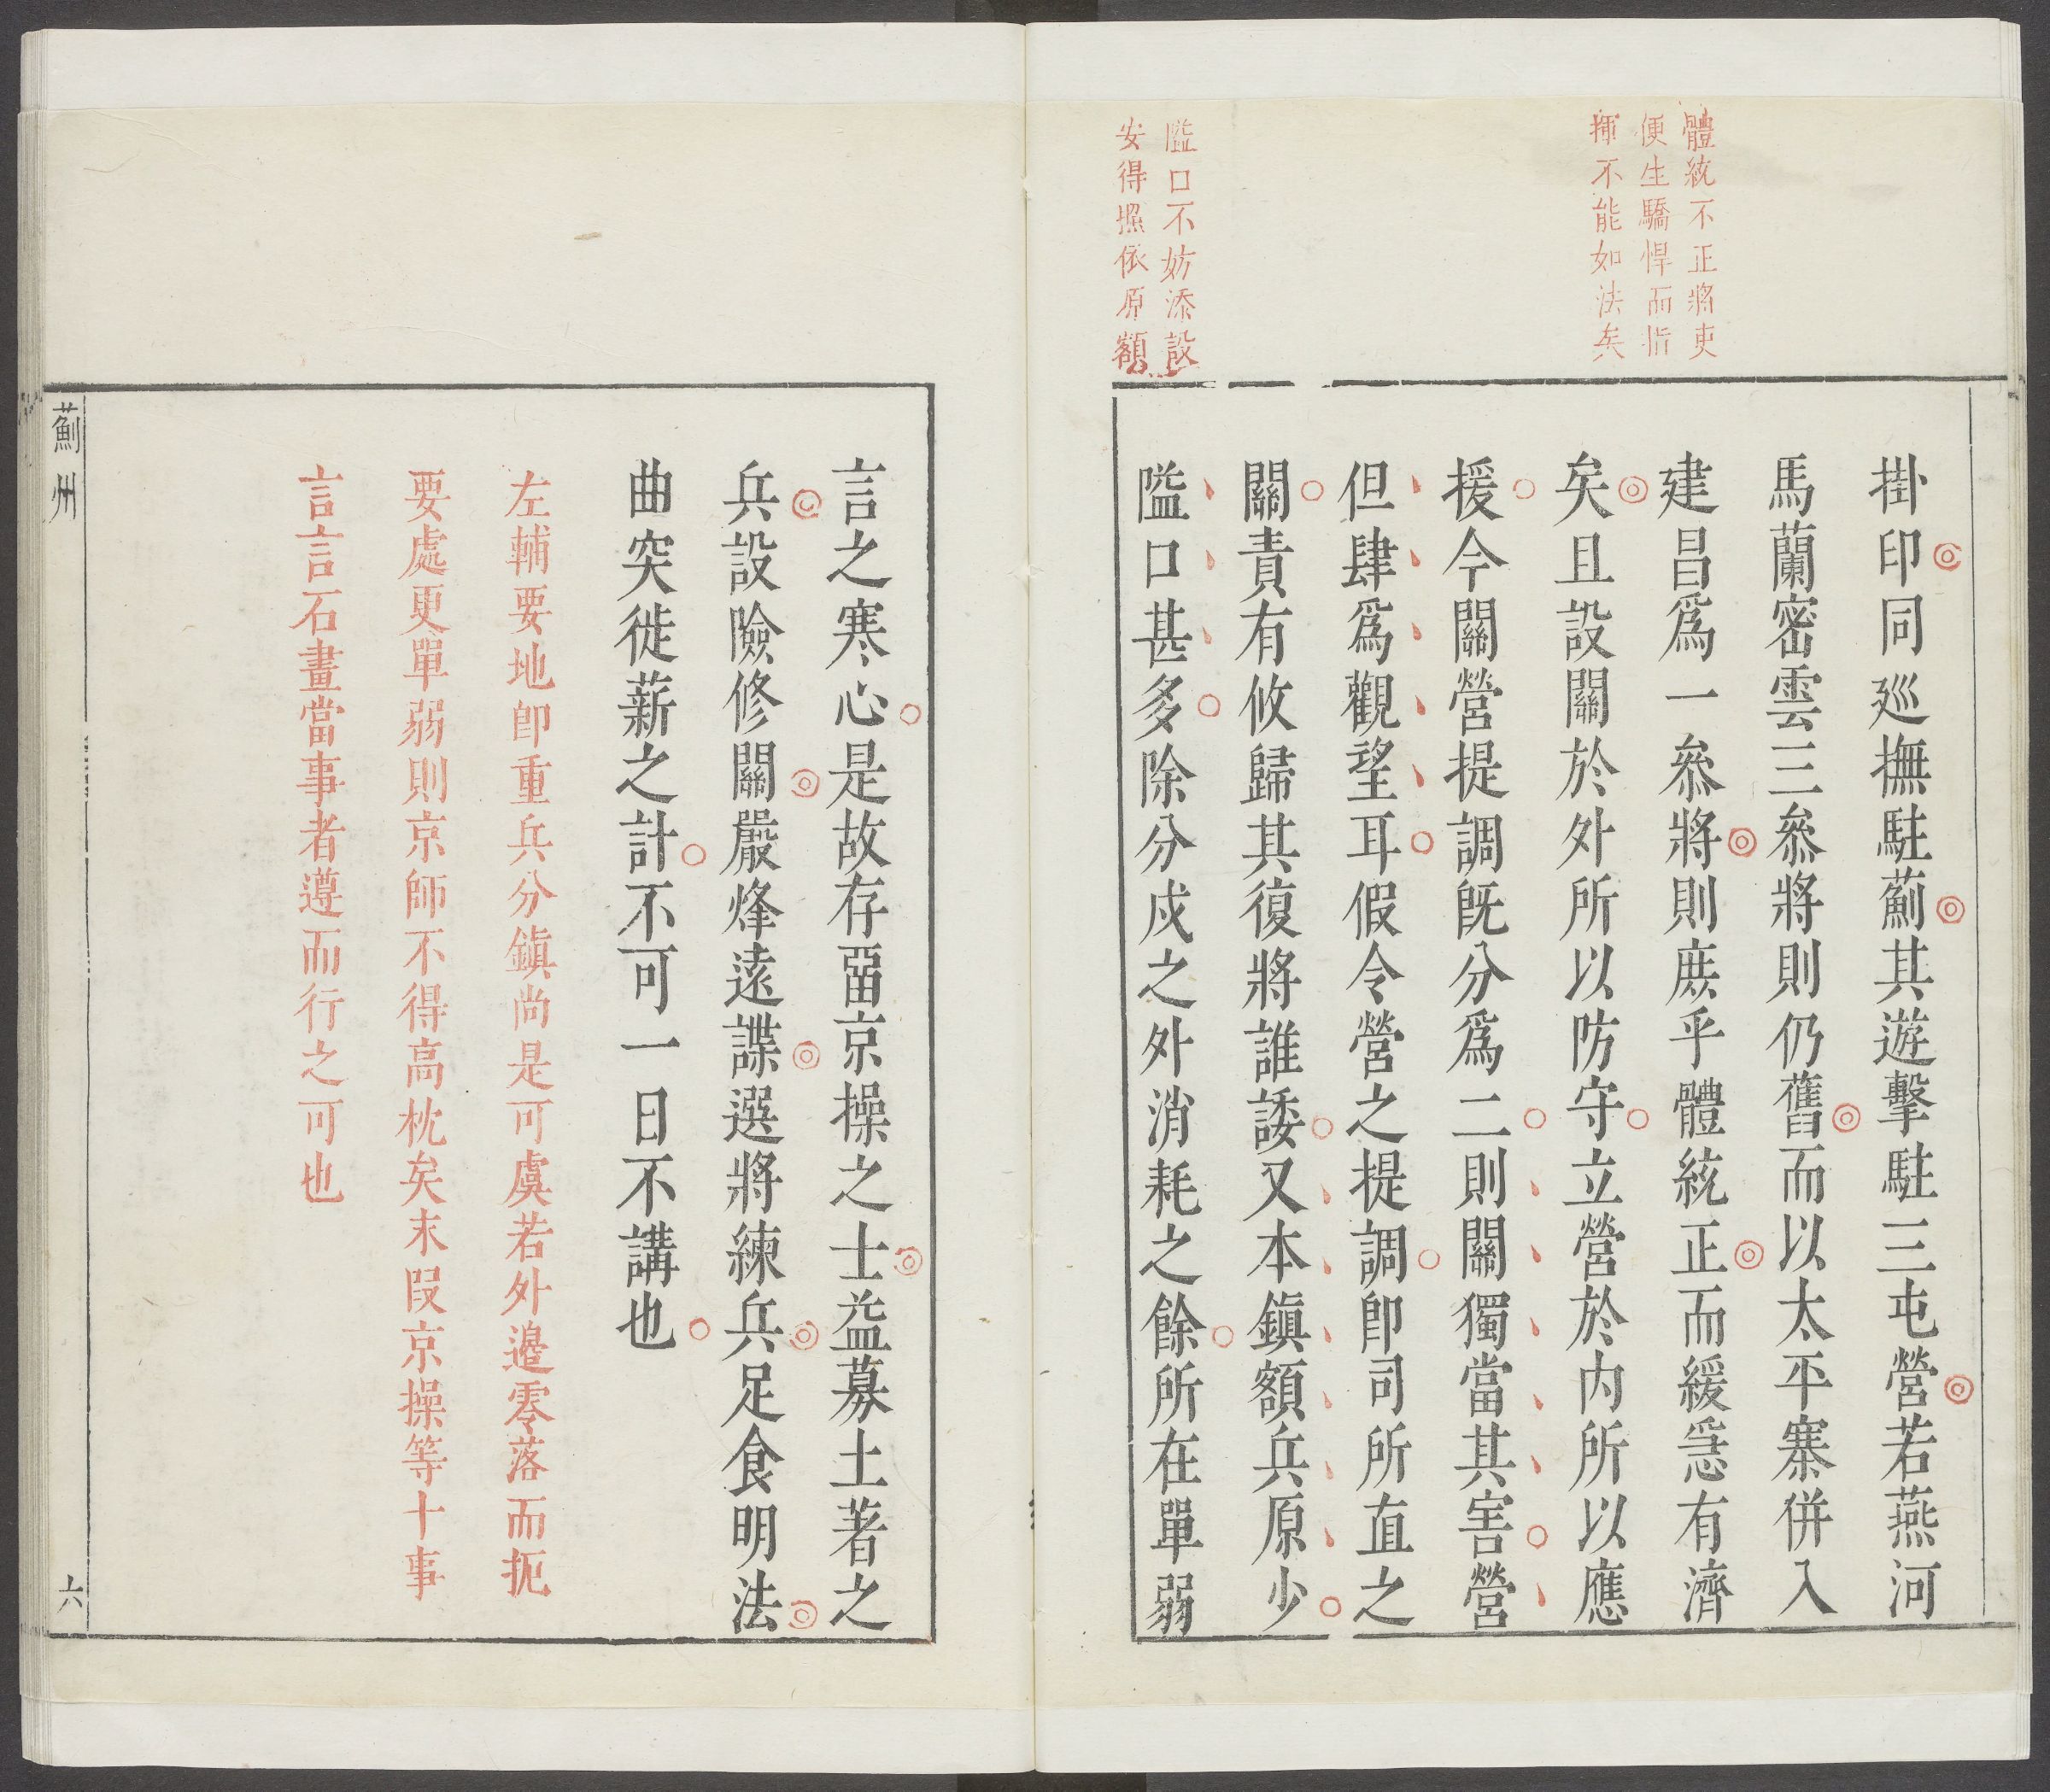 體統不正將吏
便生驕悍而指
揮不能如法矣
隘口不妨添設
安得照依原額
掛印同廵撫駐薊其遊擊駐三屯營若燕河
馬蘭密雲三叅將則仍舊而以太平寨併入
建昌爲一叅將則庶乎體統正而緩急有濟
矣且設關於外所以防守立營於内所以應
援今關營提調旣分爲二則關獨當其害營
但肆爲觀望耳假令營之提調卽司所直之
關責有攸歸其復將誰諉又本鎮額兵原少
隘口甚多除分戍之外消耗之餘所在單弱
言之寒心是故存畱京操之士益募土著之
兵設險修關嚴烽遠諜選將練兵足食明法
曲突徙薪之計不可一日不講也
左輔要地卽重兵分鎮尚是可虞若外邉零落而扼
要處更單弱則京師不得高枕矣末叚京操等十事
言言石畫當事者遵而行之可也
薊州
六